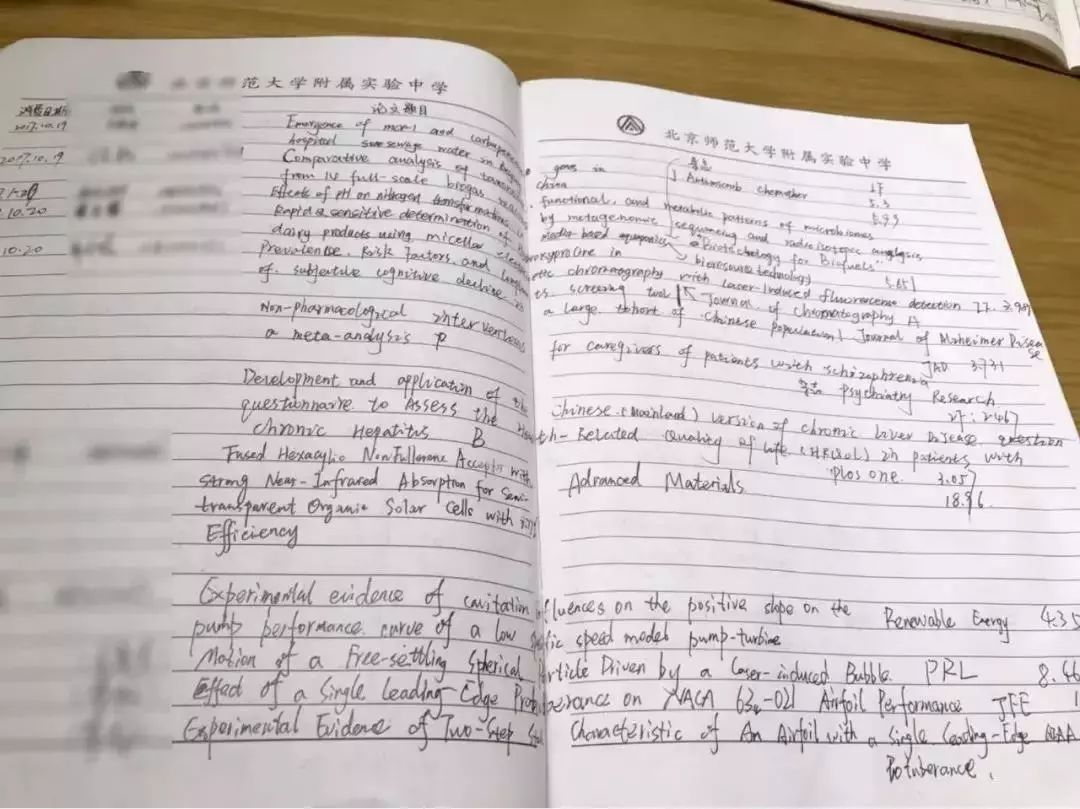 范大学附属实验中学
北京师范大学附属实验中学
论文题目
2017.10.19
Emergence of mcr-1 and carbapenem genes in
hospital sewage water in China
2017.10.19
Comparative analysis of functional, and metabolic patterns of microbiomes
from 14 full-scale biogas by metagenomic sequencing and radioisotopic analysis
Effects of pH on nitrogen transformations in media-based aquaponics
10.20
Rapid & sensitive determination of in
dairy products using micellar chromatography with laser-induced fluorescence detection
10.20
Prevalence, Risk factors, and screening tool
of subjective cognitive decline in a large cohort of Chinese population
杂志 IF
J Antimicrob chemother
5.3
Biotechnology for Biofuels
bioresource technology 5.651
Journal of chromatography A
Journal of Alzheimer Disease
JAD 3.731
Non-pharmacological interventions for caregivers of patients with schizophrenia
a meta-analysis
杂志 Psychiatry Research
IF: 2.467
Development and application of the Chinese (mainland) version of chronic liver Disease question
questionnaire to Assess the Health-Related Quality of life (HRQoL) in patients with
chronic Hepatitis B
Plos one. 3.057
Fused Hexacyclic Nonfullerene Acceptor with
strong Near-Infrared Absorption for Semi-
transparent Organic Solar Cells with
Efficiency
Advanced Materials
Experimental evidence of cavitation influences on the positive slope on the Renewable Energy 4.35
pump performance curve of a low speed model pump-turbine
Motion of a Free-settling Spherical Particle Driven by a Laser-induced Bubble. PRL 8.46
Effect of a Single Leading-Edge Protuberance on NACA Airfoil Performance JFE
Experimental Evidence of Two-Step Characteristic of An Airfoil with a Single Leading-Edge
Protuberance.